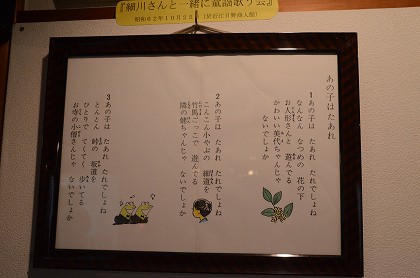 『細川さんと一緒に童謡歌う会』
昭和62年10月22日(於近江日野商人館)
あの子は たあれ
1 あの子は たあれ たれでしょね
なんなん なつめの 花の下
お人形さんと 遊んでる
かわいい美代ちゃんじゃ
ないでしょか
2 あの子は たあれ たれでしょね
こんこん小やぶの 細道を
竹馬ごっこで 遊んでる
隣の健ちゃんじゃ ないでしょか
3 あの子は たあれ たれでしょね
とんとん 峠の 坂道を
ひとりで てくてく 歩いてる
お寺の小僧さんじゃ ないでしょか